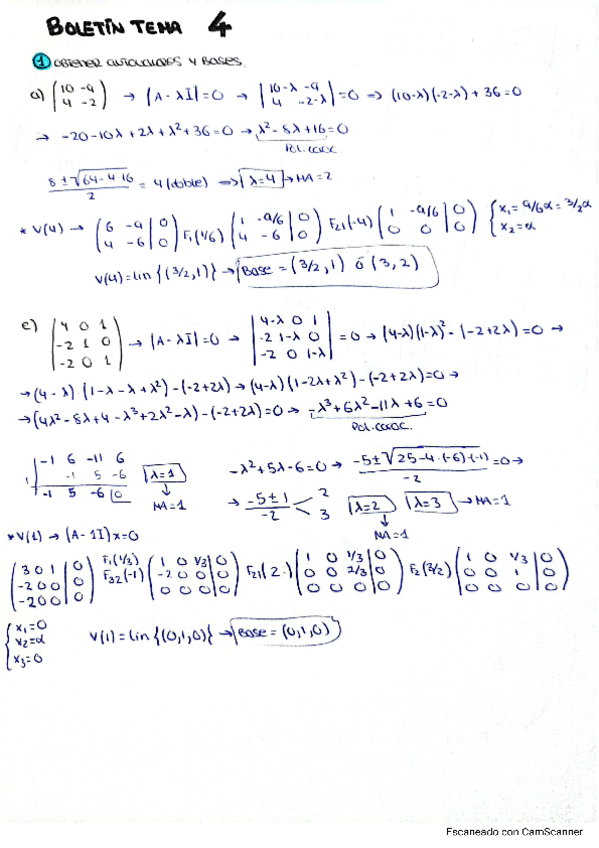 BOLETÍN TEMA 4
1 OBTENER AUTOVALORES Y BASES.
a) (10 -9 / 4 -2) → |A - λI| = 0 → |10-λ -9 / 4 -2-λ| = 0 → (10-λ)(-2-λ) + 36 = 0
→ -20 - 10λ + 2λ + λ² + 36 = 0 → λ² - 8λ + 16 = 0
Pol. carac.
8 ± √64 - 4·16 / 2 = 4 (doble) → λ = 4 → MA = 2
* V(4) → (6 -9 | 0 / 4 -6 | 0) F1(1/6) (1 -9/6 | 0 / 4 -6 | 0) F21(-4) (1 -9/6 | 0 / 0 0 | 0) { x₁ = 9/6α = 3/2α / x₂ = α
V(4) = Lin {(3/2, 1)} → Base = (3/2, 1) ó (3, 2)
e) (4 0 1 / -2 1 0 / -2 0 1) → |A - λI| = 0 → |4-λ 0 1 / -2 1-λ 0 / -2 0 1-λ| = 0 → (4-λ)(1-λ)² - (-2+2λ) = 0 →
→ (4-λ)·(1-λ-λ+λ²) - (-2+2λ) → (4-λ)(1-2λ+λ²) - (-2+2λ) = 0 →
→ (4λ² - 8λ + 4 - λ³ + 2λ² - λ) - (-2+2λ) = 0 → -λ³ + 6λ² - 11λ + 6 = 0
Pol. carac.
-1 6 -11 6
1 -1 5 -6
-1 5 -6 0
λ = 1
MA = 1
-λ² + 5λ - 6 = 0 → -5 ± √25 - 4·(-6)·(-1) / -2 = 0 →
→ -5 ± 1 / -2 2 3 λ = 2 λ = 3 → MA = 1
MA = 1
* V(1) → (A - 1I)x = 0
(3 0 1 | 0 / -2 0 0 | 0 / -2 0 0 | 0) F1(1/3) F32(-1) (1 0 1/3 | 0 / -2 0 0 | 0 / 0 0 0 | 0) F21(2) (1 0 1/3 | 0 / 0 0 2/3 | 0 / 0 0 0 | 0) F2(3/2) (1 0 1/3 | 0 / 0 0 1 | 0 / 0 0 0 | 0)
{ x₁ = 0 / x₂ = α / x₃ = 0
V(1) = Lin {(0,1,0)} → Base = (0,1,0)
Escaneado con CamScanner